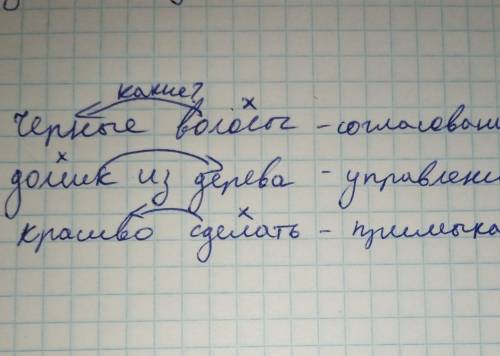 какие?
х
Черные волосы - согласовани
х
домик из дерева - управлени
х
красиво сделать - примыка